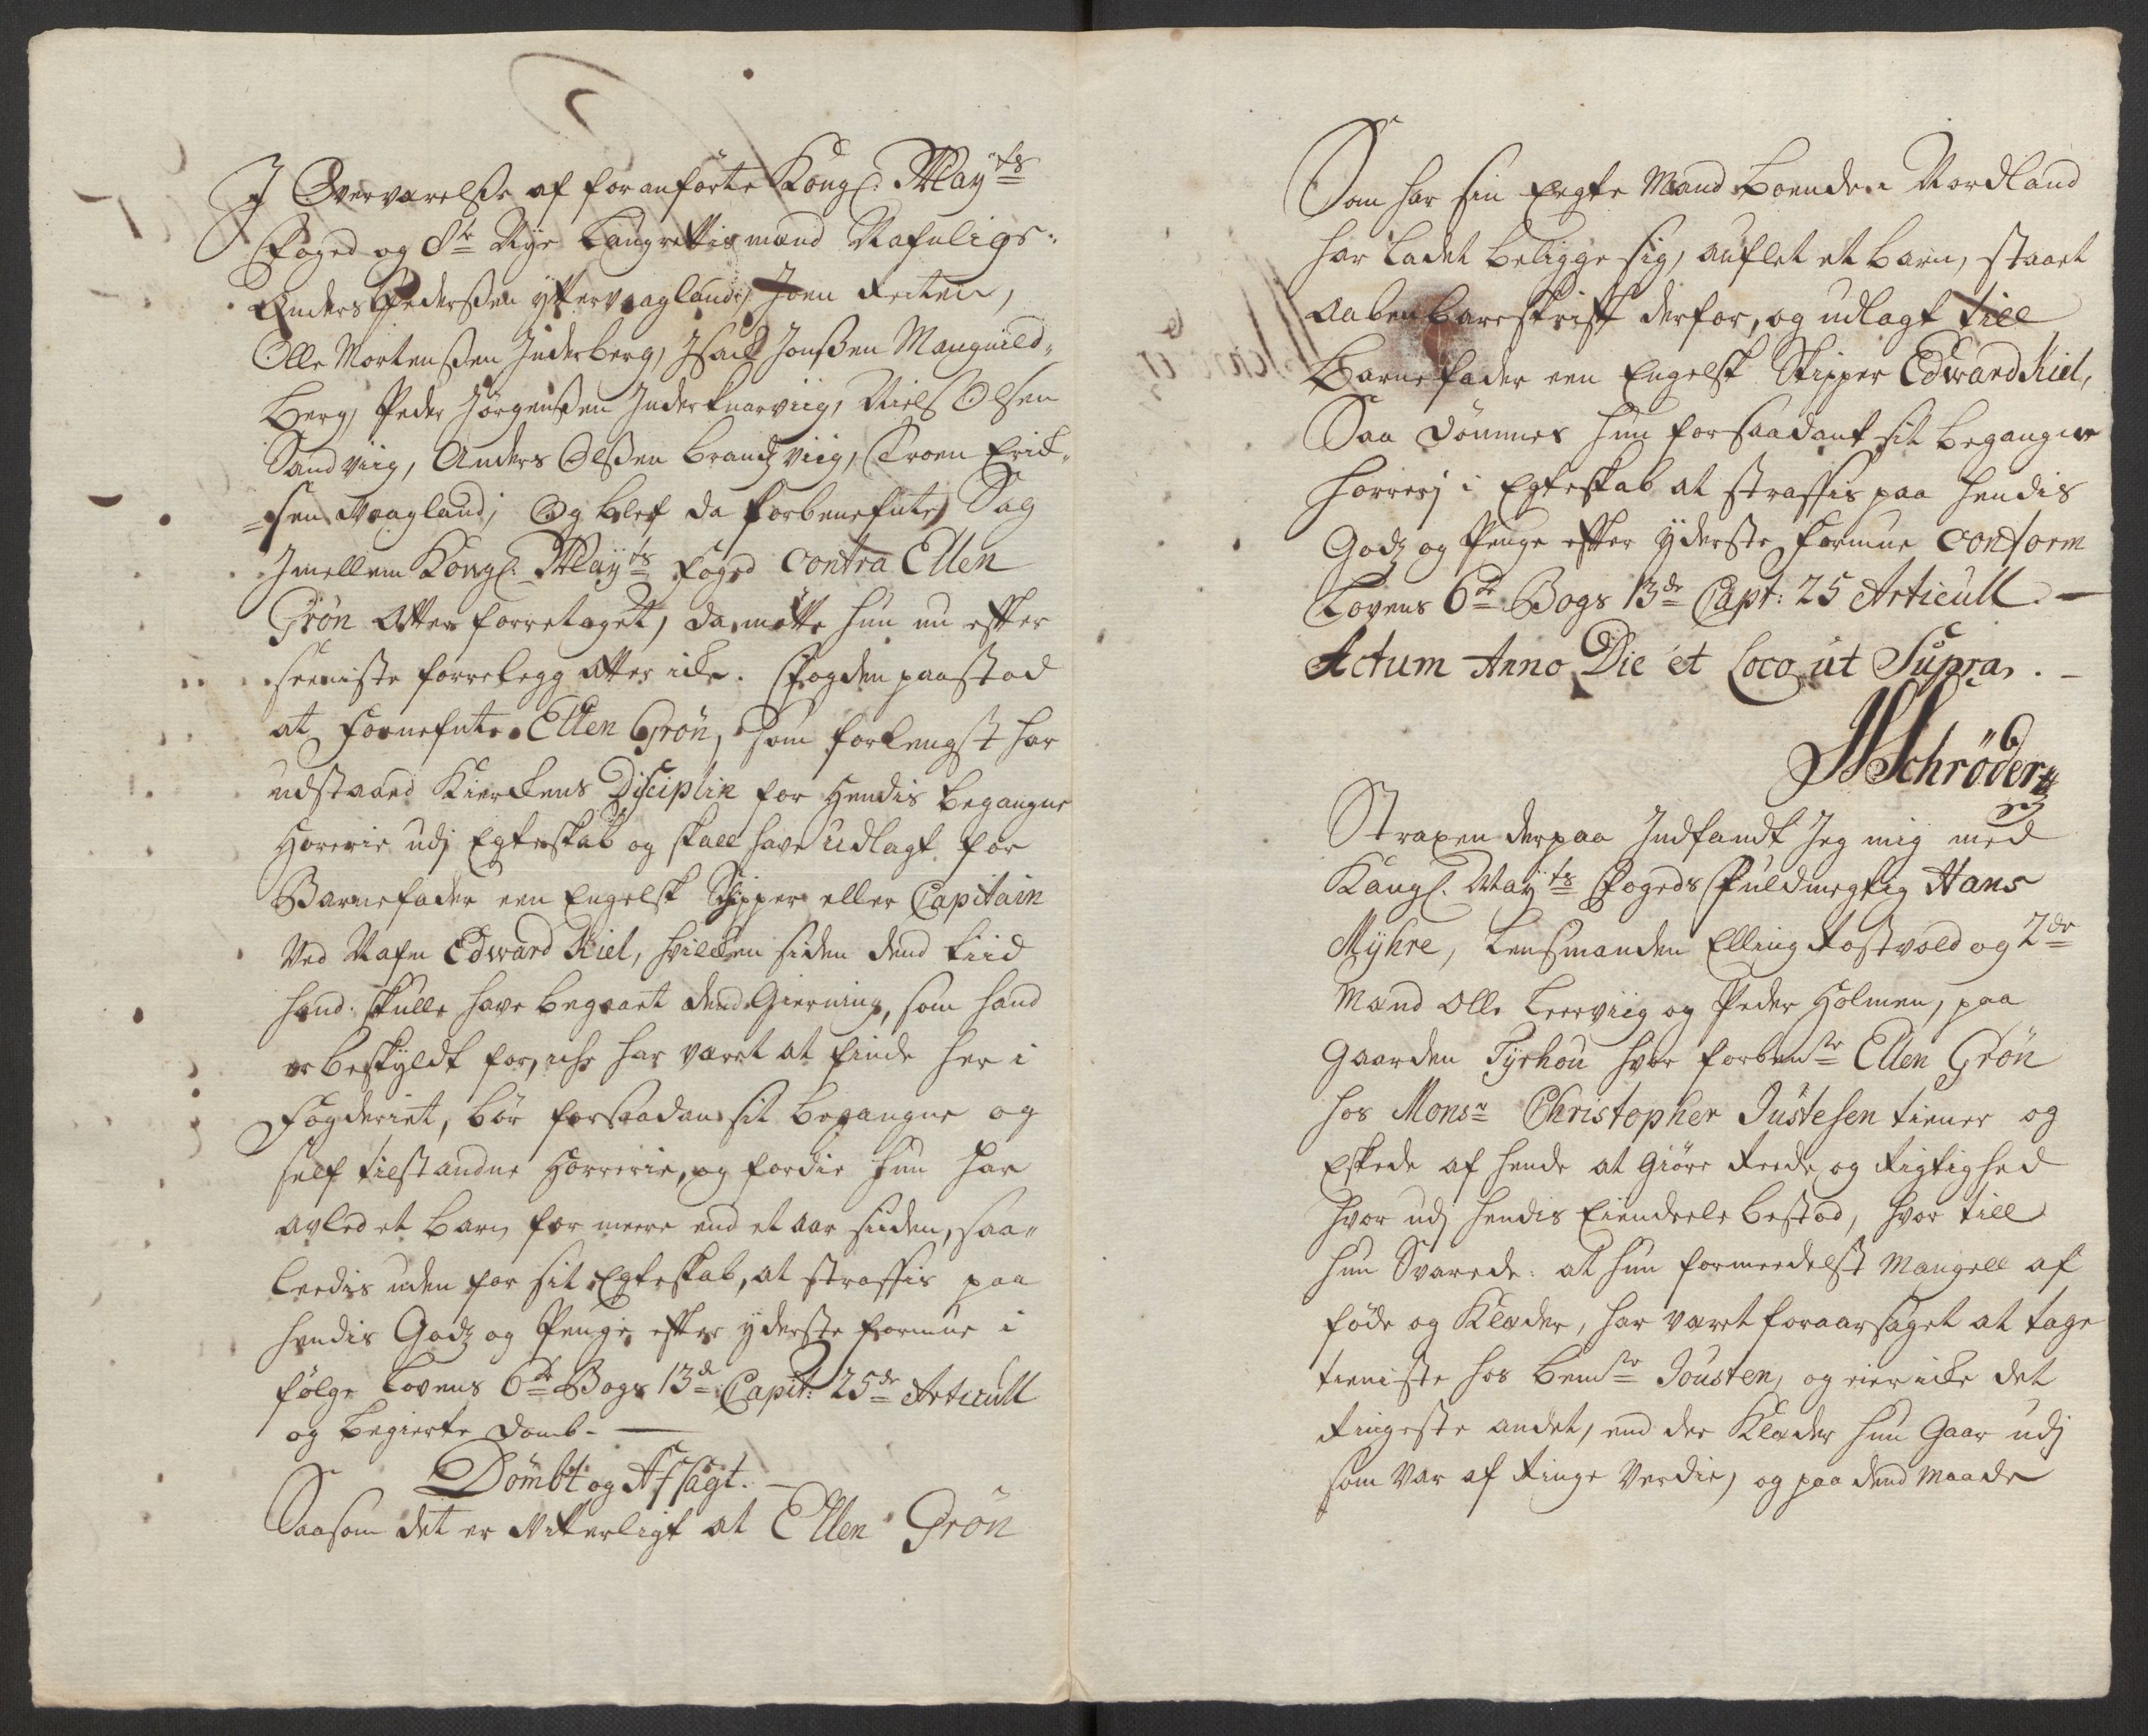 I Overværelse af foranførte Kongl: May:ts
Foged og 8te Nye Laugrettismænd Nafnligs:
Anders Pedersßen ytter Vaagland, Joen Reiten,
Olle Mortensßen Inderberg, Isach Jonsßen Manguild-
berg, Peder Jørgensßen Inderknarviig, Niels Olsen
Sandviig, Anders Olsßen brandz viig, Troen Erich-
=sen Waagland; Og blef da forbenefnte Sag
Imellem Kongl: May:ts Foged contra Ellen
Grøn atter forretaget, da møtte hun nu efter
seeniste forrelegg atter icke. Fogden paastod
at Fornefnte Ellen Grøn, som forlengst har
udstaaed Kierckens Disciplin for Hendis begangne
Horerie udj Egteskab og skall have Udlagt for
Barnefader een Engelsk Schipper eller Capitain
Ved Nafn Edward Kiel, hvilcken siden dend tiid
hand skulle have begaaet dend Gierning, som hand
er beskyldt for, iche har været at finde her i
Fogderiet, bør for saadan sit begangne og
self tilstandne Horrerie, og fordie hun har
avled et barn for meere end et aar siiden, saa-
leedis uden for sit Egteskab, at straffis paa
hendis Godz og Penge efter yderste formue i
følge Lovens 6te Bogs 13de Capit: 25de Articull
og begierte domb. —
Dømbt og Afsagt. —
Saasom det er Vitterligt at Ellen Grøn
Som har sin Egte Mand boende i Nordland
har ladet beligge sig, auflet et barn, staaet
aabenbare skrift derfor, og udlagt till
Barnefader een Engelsk Skipper Edward Kiel,
Saa dømmes hun for saadant sit begangne
Horrerj i Egteskab at straffis paa hendis
Godz og Penge efter yderste formue conform
Lovens 6te Bogs 13de Capt: 25 Articull. —
Actum Anno Die et Loco ut Supra. —
Schrøder
Straxen derpaa Indfandt Jeg mig med
Kongl: May:ts Fogeds Fuldmegtig Hans
Myhre, Lensmanden Elling Rostvold og 2de
Mænd Olle Leerviig og Peder Holmen, paa
gaarden Tyrhou hvor forbente Ellen Grøn
hos Monsr Christopher Justesen tiener og
Eskede af hende at giøre Reede og Rigtighed
hvor udj hendis Eiendeele bestod, hvor till
hun Svarede: at hun formeedelst Mangell af
føde og Klæder, har været foraarsaget at tage
tieniste hos bemte Jousten, og eier icke det
Ringeste andet, end de Klæder hun gaar udj
som var af Ringe Verdie, og paa dend maade